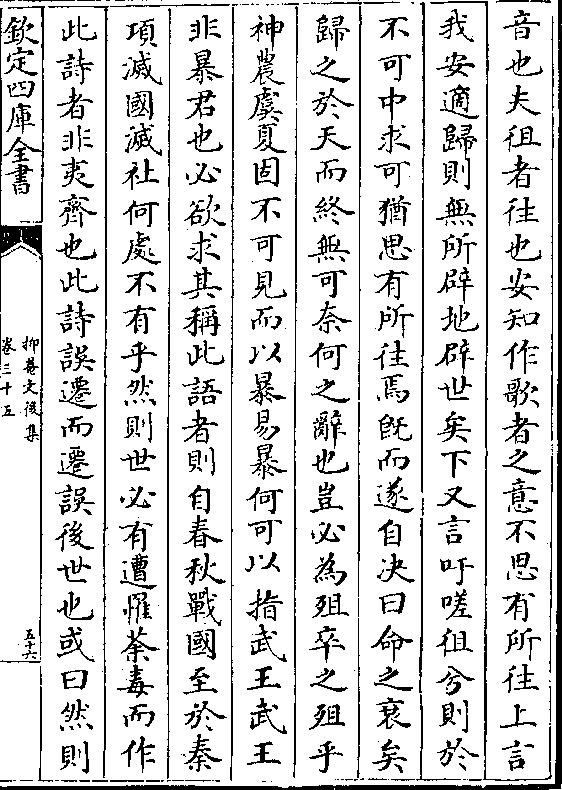 音也夫徂者往也安知作歌者之意不思有所往上言
我安適歸則無所辟地辟世矣下又言吁嗟徂兮則於
不可中求可猶思有所往焉旣而遂自决曰命之衰矣
歸之於天而終無可奈何之辭也豈必為殂卒之殂乎
神農虞夏固不可見而以暴易暴何可以指武王武王
非暴君也必欲求其稱此語者則自春秋戰國至於秦
項滅國滅社何處不有乎然則世必有遭罹荼毒而作
此詩者非夷齊也此詩誤遷而遷誤後世也或曰然則
欽定四庫全書
抑菴文後集
卷三十五
五十六